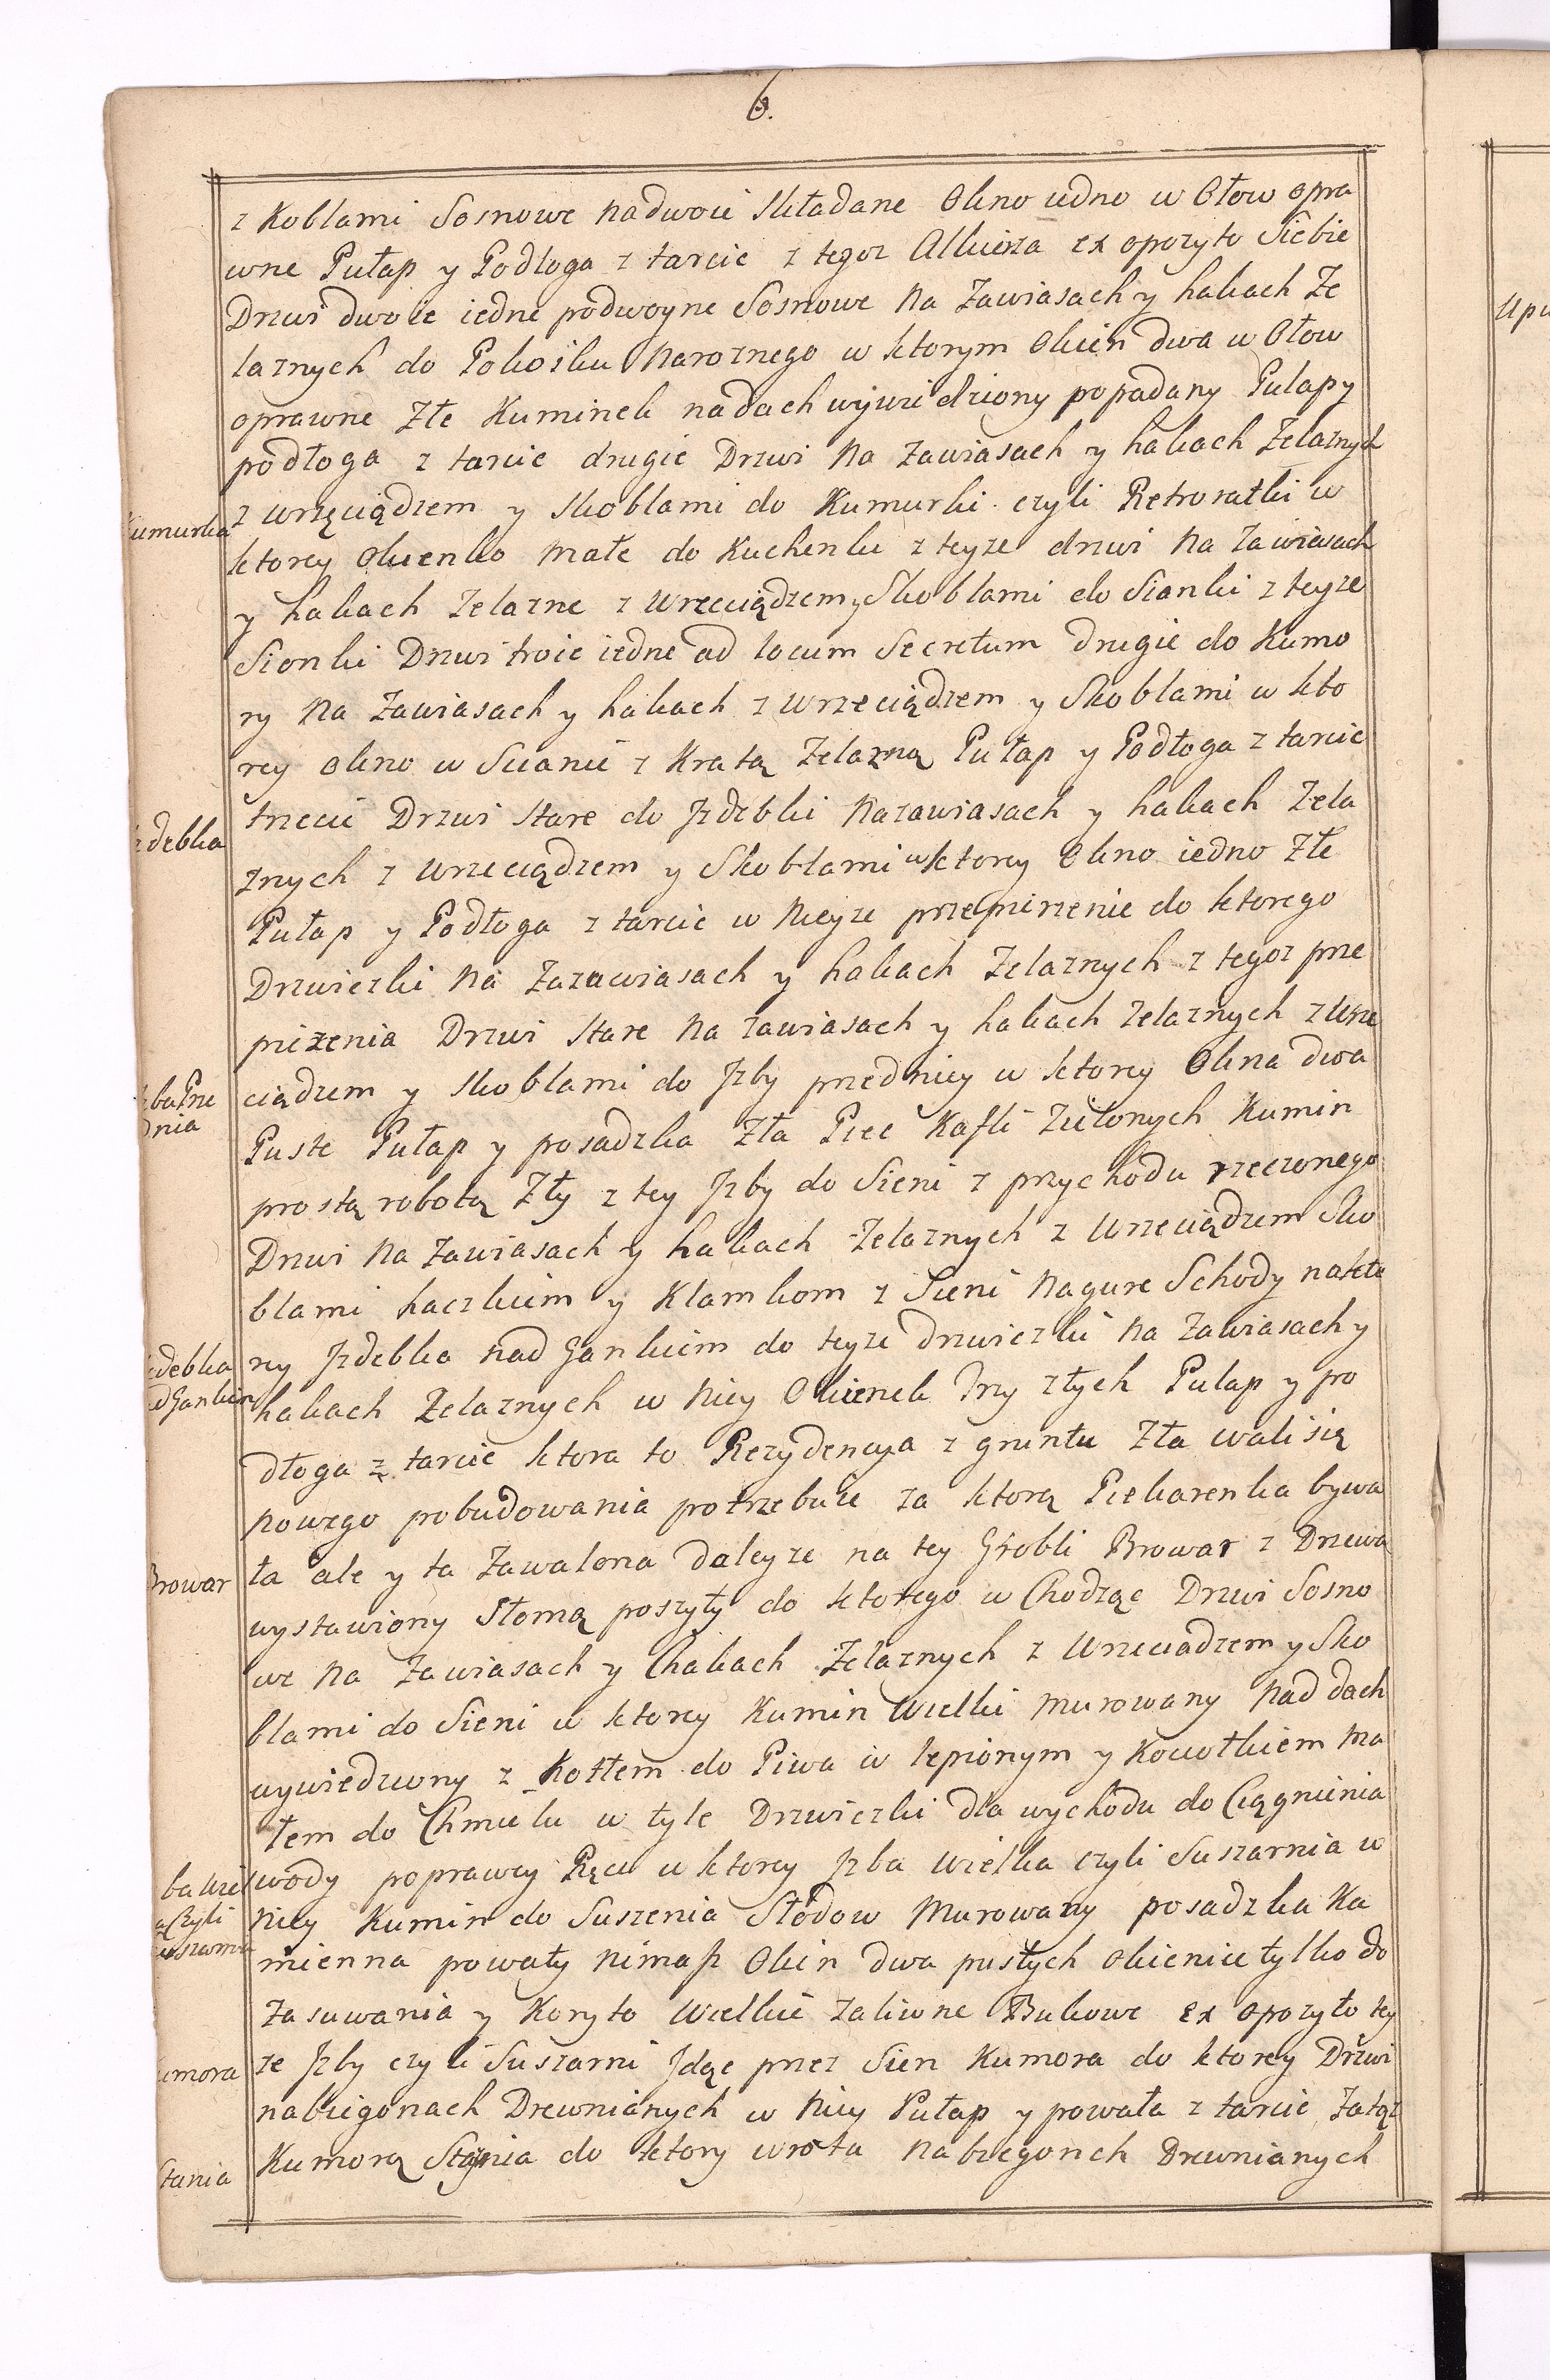 6.
z Koblami Sosnowe nadwoie składane Okno iedno w Ołow opra
wne Pułap y Podłoga z tarcic z tegoz Alkierza ex opozyto Siebie
Drzwi dwoie iedne podwoyne Sosnowe na Zawiasach y hakach Ze
laznych do Pokoiku Naroznego w ktorym Okien dwa w Ołow
oprawne Złe Kuminek nadach wywiedziony popadany Pułap y
podłoga z tarcic drugie Drzwi na Zawiasach y hakach Zelaznych
Kumurka
z wrzęciądzem y Skoblami do Kumurki czyli Retrosatki w
ktorey okienko małe do Kuchenki z teyze drzwi na Zawiasach
y hakach Zelazne z wrzeciądzem y Skoblami do Sianki z teyze
Sionki Drzwi troie iedne ad locum Secretum drugie do Kumo
ry na Zawiasach y hakach z wrzeciądzem y Skoblami w kto
rey okno w Scianie z Kratą Zelazną Pułap y Podłoga z tarcic
zdebka
trzecie Drzwi stare do Jzdebki nazawiasach y hakach Zela
znych z wrzeciądzem y Skoblami w ktorey Okno iedno Złe
Pułap y Podłoga z tarcic w Nieyze przepirzenie do ktorego
Drzwiczki na Zazawiasach y hakach Zelaznych z tegoz prze
pierzenia Drzwi stare na zawiasach y hakach zelaznych z wrze
zba Prze
dnia
ciądzem y skoblami do Jzby przedniey w ktorey Okna dwa
Puste Pułap y posadzka Zła Piec Kafli Zielonych Kumin
prostą robotą Zły z tey Jzby do Sieni z przychodu rzeczonego
Drzwi na Zawiasach y hakach Zelaznych z wrzeciądzem Sko
blami haczkiem y Klamkom z Sieni nagure Schody na kto
zdebka
ad Gankiem
rey Jzdebka nad Gankiem do teyze drzwiczki na Zawiasach y
hakach Zelaznych w niey Okienek trzy złych Pułap y po
dłoga z tarcic ktora to Rezydencya z gruntu Zła wali się
nowego pobudowania potrzebuie za ktorą Piekarenka bywa
Browar
ła ale y ta Zawalona daleyze na tey Grobli Browar z Drzewa
wystawiony Słomą poszyty do ktorego w Chodząc Drzwi Sosno
we na Zawiasach y Chakach Zelaznych z Wrzeciadzem y Sko
blami do Sieni w ktorey Kumin Wielki murowany nad dach
wywiedziony z Kotłem do Piwa w lepionym y Kociołkiem ma
łem do Chmielu w tyle Drzwiczki dla wychodu do Ciągnienia
ba wiel
a Czyli
uszarnia
wody poprawey Ręce w ktorey Jzba wielka czyli Suszarnia w
niey Kumin do Suszenia Słodow Murowany posadzka Ka
mienna powały nimasz Okin dwa pustych okienice tylko do
Zasuwania y Koryto Wielkie Zaliwne Bukowe Ex opozyto tey
umora
ze Jzby czyli Suszarni Jdąc przez Sien Kumora do ktorey Drzwi
nabiegonach Drewnianych w niey Pułap y powała z tarcic Zatąz
Stania
Kumorą Stania do ktory wrota nabiegonch Drewnianych